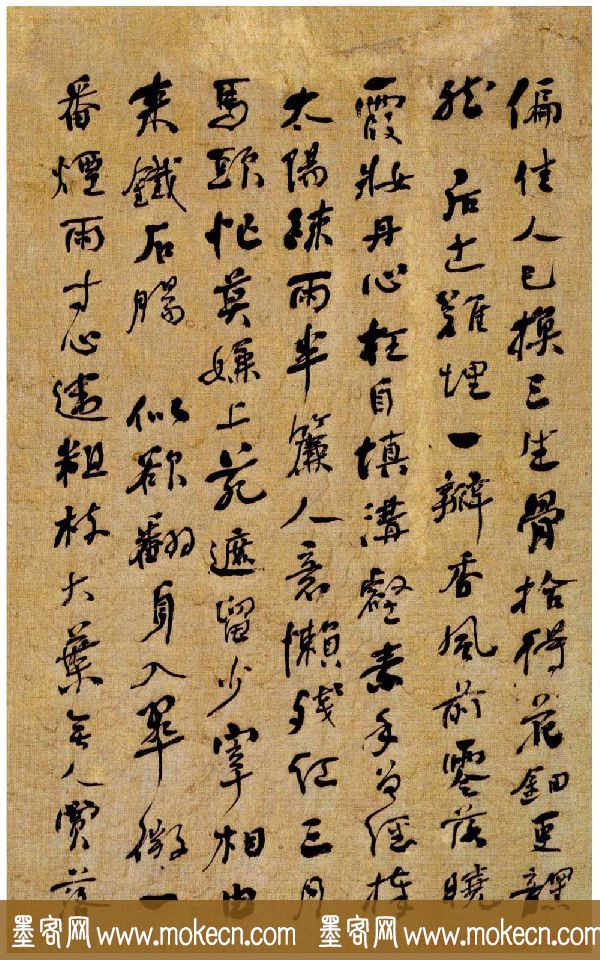 偏佳人已換三生骨拾得花鈿更黯
然 后土難埋一瓣香風前零落曉
霞妝丹心枉自填溝壑素手曾經捧
太陽疎雨半簾人意懶殘紅三月
馬頭忙莫嫌上苑遮留少宰相由
來鐵石腸 似欲翻身入翠微一
番煙雨寸心違粗枝大葉無人賞落
墨客网 www.mokecn.com 墨客网 www.mokecn.com